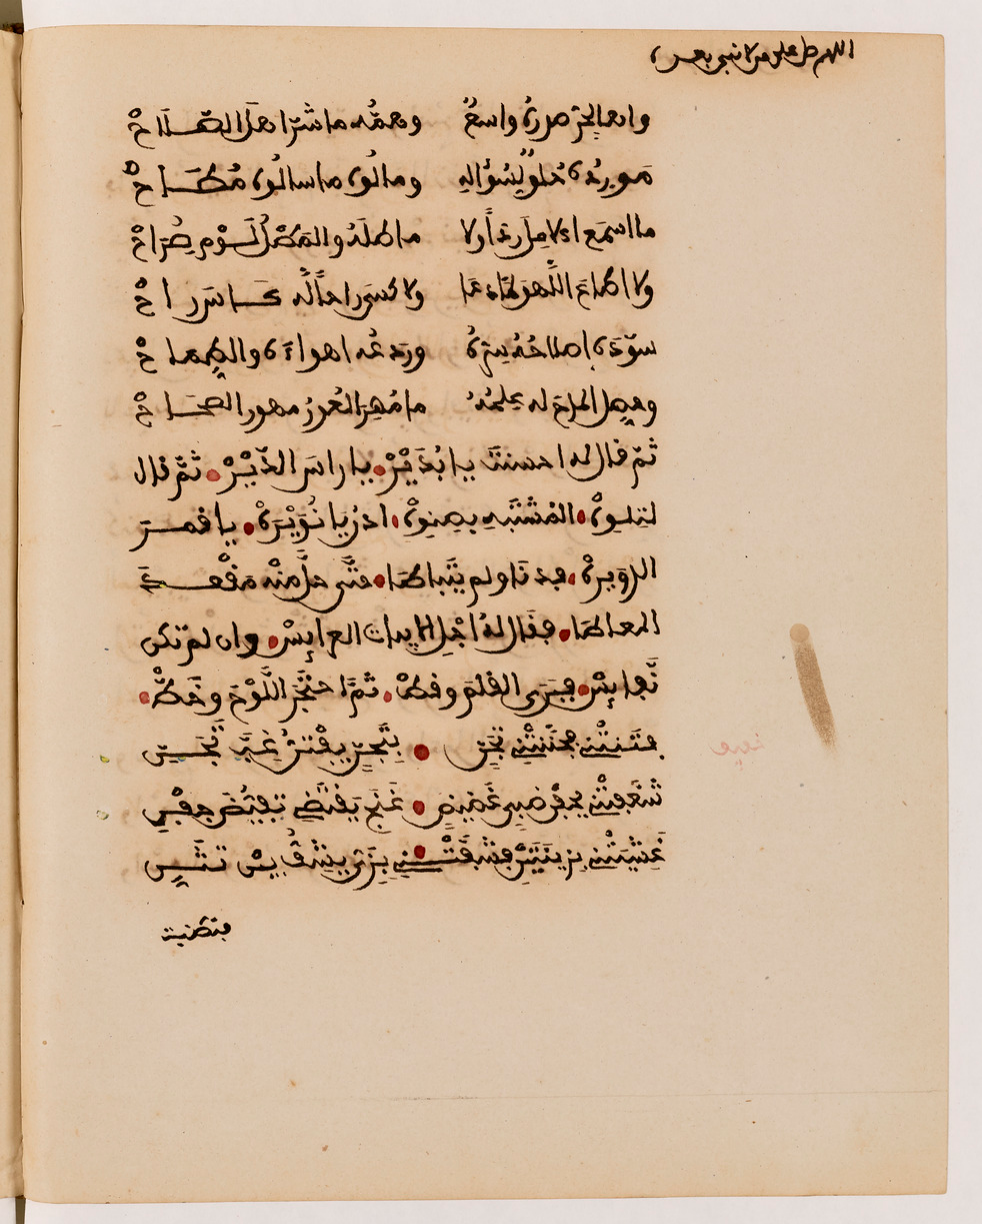 اللهم صل على من لا نبي بعده
واها لحرّ صدره واسعٌ وهمُّه ما سرّ اهل الصّلَاحْ
مَوردُه حُلوٌ لسُؤّاله ومالُه ما سالُوه مُطَاحْ
ما اسمَع الامِلَ ردّاً ولا ماطلَهُ والمَطْلُ لَوْم صُرَاحْ
ولا اطاعَ اللَّهوَ لمّا دعَا ولا كسَى راحاً لُه كاسَ راحْ
سوّدَه اصلاحُه سِرّهُ وردعُه اهواءَه والطِماحْ
وحصل المدح له علمُهُ ما مُهِرَ العُورُ مهور الصحَاحْ
ثمّ قال له احسنتَ يا بُدَيْرْ يا راسَ الدَّيْرْ ثمّ قال
لتلوِهْ المُشْتَبِهِ بصِنوِهْ ادنُ يا نُوَيْرَهْ يا قمرَ
الدوَيرهْ فدنا ولم يتَباطا حتَّى حلَّ منْه مَقْعدَ
المعاطَا فقال لهُ اجْلِ الابيات العرايسْ وان لم تكن
نَّفايسْ فبَرَى القلمَ وقطْ ثمَّ احتَجَر اللَّوْحَ وخَطْ
فتَنتْني فجنَّنتْني تجَنّي بتَجنٍّ يفْتنُ غِبَّ تَجَنّي
شغَفتْني بجفْن ظبي غَضيضٍ غنَجٍ يَقتَضي تغيُّضَ جفْنِي
غشيَتْني بزينتَيْنِ فشفَّتْني بزيٍّ يشفُّ بين تثَنِّي
فتظنيت